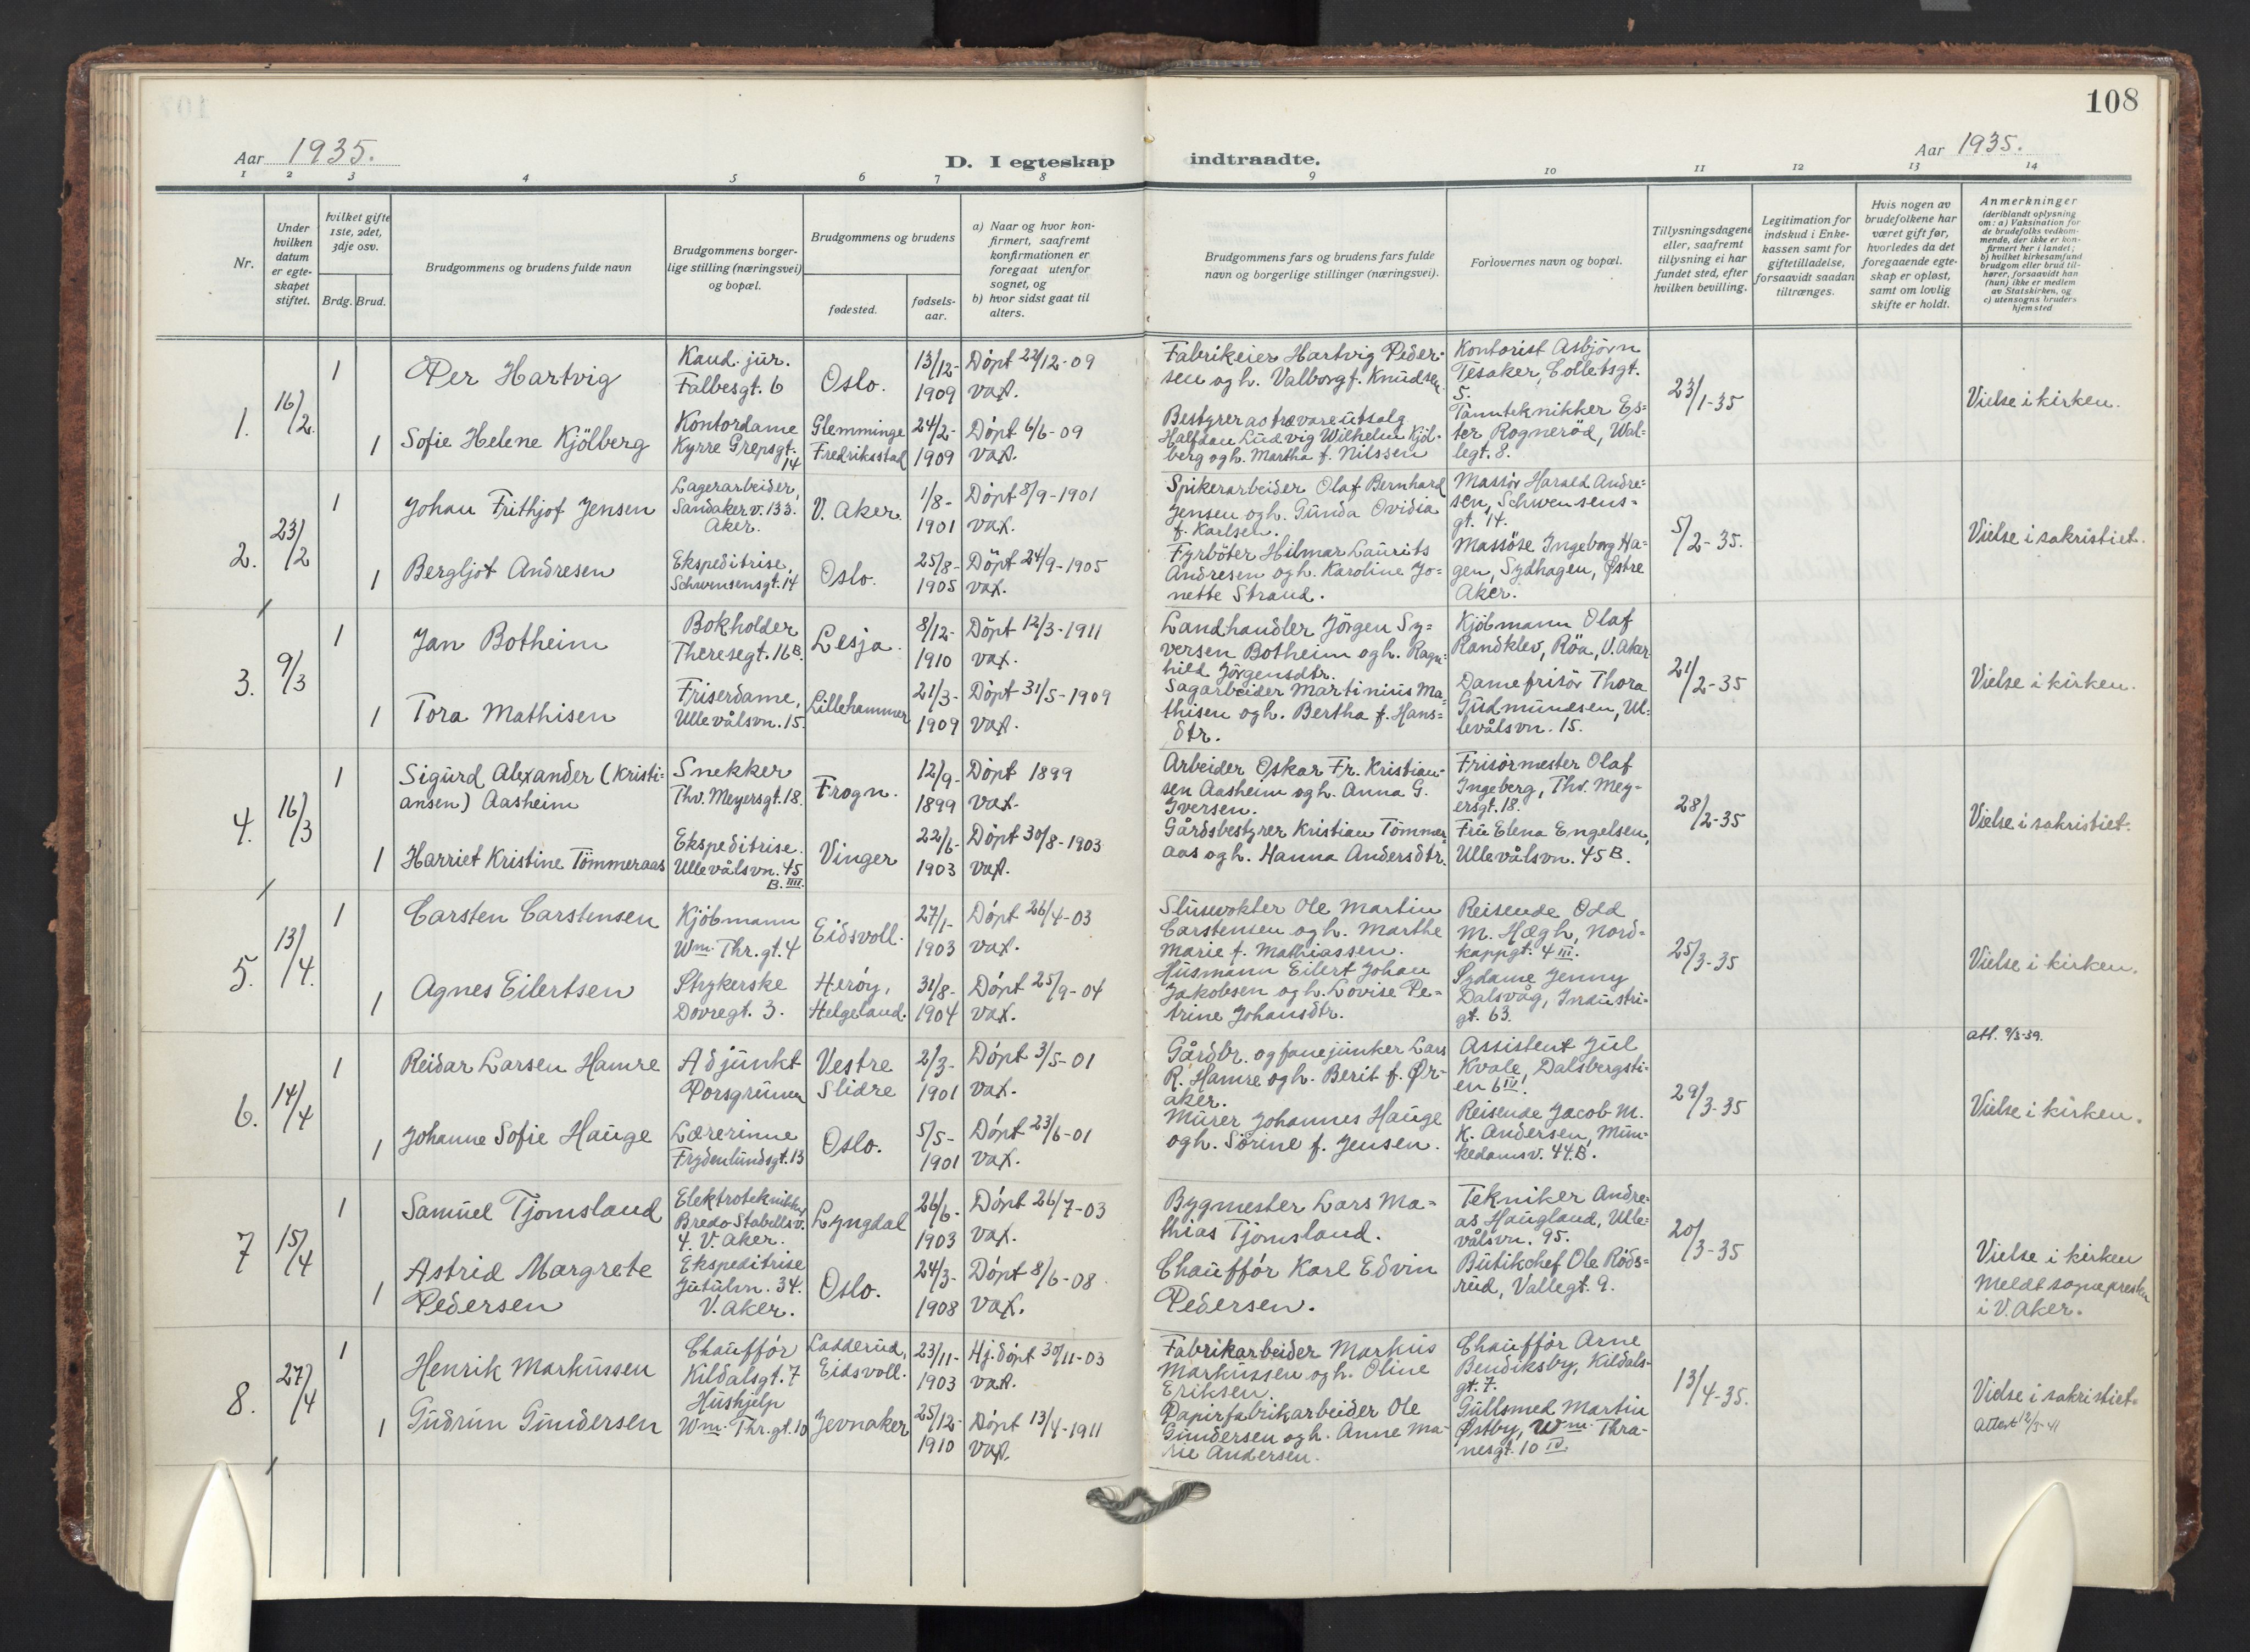 108
Aar 1935.
D. I egteskap indtraadte.
Aar 1935.
1 2 3 4 5 6 7 8 9 10 11 12 13 14
Nr.
Under
hvilken
datum
er egte-
skapet
stiftet.
hvilket gifte
1ste, 2det,
3dje osv.
Brdg. Brud.
Brudgommens og brudens fulde navn
Brudgommens borger-
lige stilling (næringsvei)
og bopæl.
Brudgommens og brudens
fødested.
fødsels-
aar.
a) Naar og hvor kon-
firmert, saafremt
konfirmationen er
foregaat utenfor
sognet, og
b) hvor sidst gaat til
alters.
Brudgommens fars og brudens fars fulde
navn og borgerlige stillinger (næringsvei).
Forlovernes navn og bopæl.
Tillysningsdagene
eller, saafremt
tillysning ei har
fundet sted, efter
hvilken bevilling.
Legitimation for
indskud i Enke-
kassen samt for
giftetilladelse,
forsaavidt saadan
tiltrænges.
Hvis nogen av
brudefolkene har
været gift før,
hvorledes da det
foregaaende egte-
skap er opløst,
samt om lovlig
skifte er holdt.
Anmerkninger
(deriblandt oplysning
om: a) Vaksination for
de brudefolks vedkom-
mende, der ikke er kon-
firmert her i landet;
b) hvilket kirkesamfund
brudgom eller brud til-
hører, forsaavidt han
(hun) ikke er medlem
av Statskirken, og
c) utensogns bruders
hjemsted
1. 16/2.
1
Per Hartvig
Kand. jur.
Falbesgt. 6
Oslo.
13/12-
1909
Döpt 22/12-09
vax.
Fabrikeier Hartvig Peder-
sen og h. Valborg f. Knudsen
Kontorist Asbjörn
Tesaker, Colletsgt.
5.
23/1-35
Vielse i kirken.
1
Sofie Helene Kjölberg
Kontordame
Kyrre Grepsgt.
14
Glemminge
Fredriksstad
24/2-
1909
Döpt 6/6-09
vax.
Bestyrer as trævareutsalg
Halfdan Ludvig Wilhelm Kjöl-
berg og h. Martha f. Nilssen
Tannteknikker Es=
ter Rogneröd, Wal=
legt. 8.
2. 23/2
1
Johan Frithjof Jensen
Lagerarbeider,
Sandakerv. 133.
Aker.
V. Aker.
1/8-
1901
Döpt 8/9-1901
vax.
Spikerarbeider Olaf Bernhard
Jensen og h. Gunda Ovidia
f. Karlsen.
Massör Harald Andre=
sen, Schwensens=
gt. 14.
5/2-35.
Vielse i sakristiet.
1
Bergljot Andresen
Ekspeditrise,
Schwensensgt. 14
Oslo.
25/8-
1905
Döpt 24/9-1905
vax.
Fyrböter Hilmar Laurits
Andresen og h. Karoline Jo=
nette Strand.
Massöse Ingeborg Ha=
gen, Sydhagen, Østre
Aker.
3. 9/3
1
Jan Botheim
Bokholder
Theresegt. 16B.
Lesja.
8/12-
1910
Döpt 12/3-1911
vax.
Landhandler Jörgen Sy=
versen Botheim og h. Ragn=
hild Jörgensdtr.
Kjöbmann Olaf
Randklev, Röa, V. Aker
21/2-35
Vielse i kirken.
1
Tora Mathisen
Friserdame,
Ullevålsvn. 15.
Lillehammer
21/3-
1909
Döpt 31/5-1909
vax.
Sagarbeider Martinius Ma=
thisen og h. Bertha f. Hans=
dtr.
Damefrisör Thora
Gudmundsen, Ul=
levålsvn. 15.
4. 16/3
1
Sigurd Alexander (Kristi=
ansen) Aasheim
Snekker
Thv. Meyersgt. 18.
Frogn.
12/9-
1899
Döpt 1899
vax.
Arbeider Oskar Fr. Kristian-
sen Aasheim og h. Anna G.
Iversen.
Frisörmester Olaf
Ingeberg, Thv. Mey-
ersgt. 18.
28/2-35
Vielse i sakristiet.
1
Harriet Kristine Tömmeraas
Ekspeditrise.
Ullevålsvn. 45
B. IIII.
Vinger
22/6-
1903
Döpt 30/8-1903
vax.
Gårdsbestyrer Kristian Tömmer=
aas og h. Hanna Andersdtr.
Fru Elena Engelsen,
Ullevålsvn. 45 B.
5. 13/4.
1
Carsten Carstensen
Kjöbmann
Wm. Thr. gt. 4
Eidsvoll.
27/1-
1903
Döpt 26/4-03
vax.
Slusevokter Ole Martin
Carstensen og h. Marthe
Marie f. Mathiassen.
Reisende Odd
M. Hægh, Nord-
kappgt. 4 III.
25/3-35
Vielse i kirken.
1
Agnes Eilertsen
Strykerske
Dovregt. 3.
Heröy,
Helgeland.
31/8-
1904
Döpt 25/9-04
vax.
Husmann Eilert Johan
Jakobsen og h. Lovise Pe=
trine Johansdtr.
Sydame Jenny
Dalsvåg, Industri-
gt. 63.
6. 14/4
1
Reidar Larsen Hamre
Adjunkt
Porsgrunn
Vestre
Slidre
2/3-
1901
Döpt 3/5-01
vax.
Gårdbr. og fanejunker Lars
R. Hamre og h. Berit f. Ør-
aker.
Assistent Jul
Kvale, Dalsbergsti-
en 6 IV.
29/3-35
att. 9/3-39.
Vielse i kirken.
1
Johanne Sofie Hauge
Lærerinne
Frydenlundsgt. 13
Oslo.
5/5-
1901
Döpt 23/6-01
vax.
Murer Johannes Hauge
og h. Sörine f. Jensen.
Reisende Jacob M.
K. Andersen, Mun-
kedamsv. 44.B.
7 15/4
1
Samuel Tjomsland
Elektrotekniker
Bredo Stabellsv.
4. V. Aker.
Lyngdal
26/6-
1903
Döpt 26/7-03
vax.
Bygmester Lars Ma=
thias Tjomsland.
Tekniker Andre=
as Haugland, Ulle=
vålsvn. 95.
20/3-35
Vielse i kirken
Meldt sognepresten
i V. Aker.
1
Astrid Margrete
Pedersen
Ekspeditrise
Jutulvn. 34.
V. Aker.
Oslo.
24/3-
1908
Döpt 8/6-08.
vax.
Chaufför Karl Edvin
Pedersen.
Butikchef Ole Röds=
rud, Vallegt. 9.
8. 27/4
1
Henrik Markussen
Chaufför
Kildalsgt. 7
Ladderud,
Eidsvoll.
23/11-
1903
Hj. döpt 30/11-03
vax.
Fabrikarbeider Markus
Markussen og h. Oline
Eriksen.
Chaufför Arne
Bendiksby, Kildals-
gt. 7.
13/4-35.
Vielse i sakristiet.
Attest 12/5-41
1
Gudrun Gundersen
Hushjelp
Wm. Thr. gt. 10
Jevnaker
25/12-
1910
Döpt 13/4-1911
vax.
Papirfabrikarbeider Ole
Gundersen og h. Anne Ma-
rie Andersen.
Gullsmed Martin
Østby, Wm. Thra-
nesgt. 10 IV.